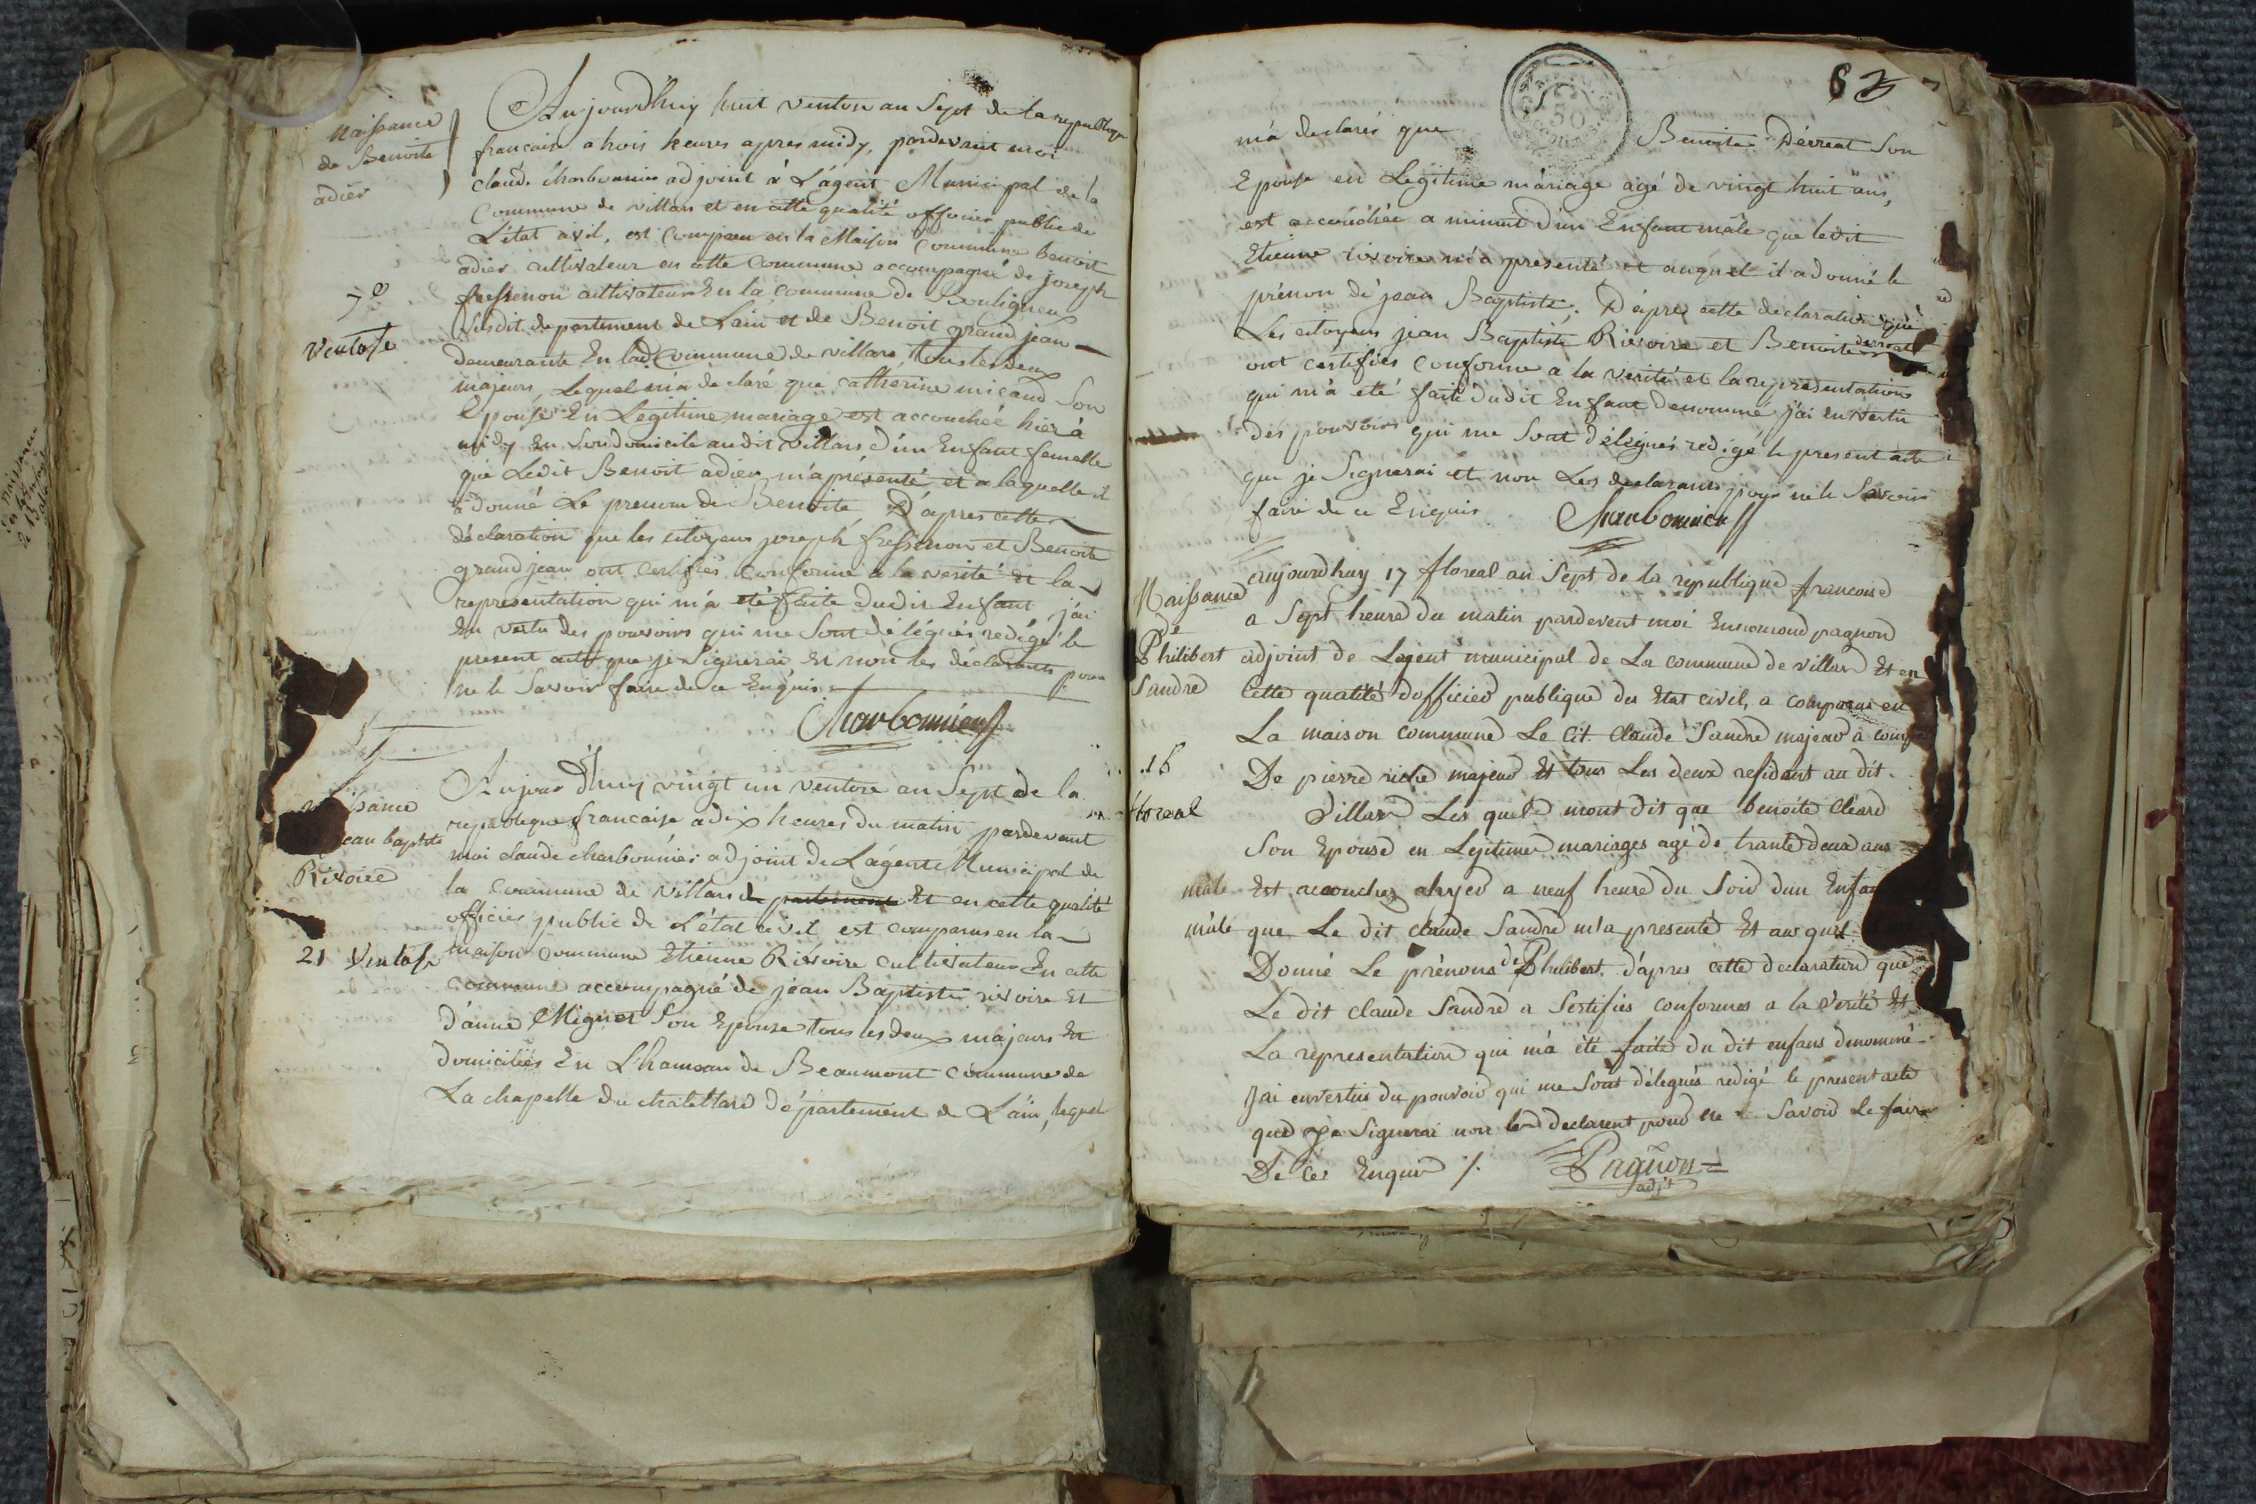 Naissance
de Benoite
adier
7e
Ventose
Aujourdhuy huit ventose an Sept de la republique
francaise a trois heures apres midy, pardevant moi
claude charbonnier adjoint à L'agent Municipal de la
Commune de villars et en cette qualité officier public de
L'état civil, est comparu en la Maison Commune Benoit
adier cultivateur en cette Commune accompagné de joseph
fressenon cultivateur En la commune de Bouligneux
Susdit departement de Lain et de Benoit grand jean
demeurante En lad Commune de villars tous les deux
majeurs, Lequel m'a declaré que catherine micaud Son
Epouse En Legitime mariage est accouchée hier à
midy En Son domicile audit villars d'un Enfant femelle
que Ledit Benoit adier m'a présenté et a laquelle il
a donné Le prenom de Benoite D'apres cette
déclaration que les citoyens joseph fressenon et Benoit
grand jean ont certifiés conforme a la verité et la
representation qui m'a eté faite dudit Enfant j'ai
En vertu des pouvoirs qui me Sont délégués redigé le
present acte que je Signerai et non les déclarants pour
ne le Savoir faire de ce Enquis.
Charbonnier
Jean baptiste
Rivoire
21 Ventose
Aujourd'huy vingt un ventose an Sept de la
republique francaise a dix heures du matin pardevant
moi claude charbonnier adjoint de L'agent Municipal de
la Commune de villars de partement Et en cette qualité
officier public de L'état civil est comparus en la
maison commune Etienne Rivoire cultivateur En cette
commune accompagné de jean Baptiste rivoire Et
d'anne Mignet Son Epouse tous les deux majeurs Et
domiciliés En L'hameau de Beaumont commune de
La chapelle du chatellard département de L'ain, lequel
63
m'a declarés que Benoite Décreat Son
Epouse en Legitime mariage agé de vingt huit ans,
est accouchée a minuit d'un Enfant mâle que ledit
Etienne rivoire m'a presenté et auquel il a donné le
prénom de jean Baptiste. D'apres cette declaration que
Les citoyens jean Baptiste Rivoire et Benoite decreat
ont certifiés conforme a la verité et la representation
qui m'a eté faite dudit Enfant denommé j'ai En vertu
des pouvoirs qui me Sont délégués redigé le present acte
que je Signerai et non Les declarants pour ne le Savoir
faire de ce Enquis
Charbonnier
Naissance
De
Philibert
Sandre
16
floreal
aujourdhuy 17 floreal an Sept de la republique francoise
a Sept heure du matin pardevent moi Ennemond pagnon
adjoint de Lajent municipal de La commune de villar Et en
Cette qualité dofficier publique du Etat civil, a comparus en
La maison commune Le Cit. Claude Sandre majeur a comp
De pierre riche majeur Et tous Les deux residant au dit
Villar Les quels mont dit que benoite Cleard
Son Epouse en Lejitime mariages agé de trante deux ans
mâle Est accouchez ahyer a neuf heure du Soir dun Enfan
mâle que Le dit claude Sandre m'a presenté Et au quel
Donné Le prénoms de Philibert. d'apres cette declaration que
Le dit claude Sandre a Sertifiés conformes a la verité Et
La representation qui m'a été faite du dit enfans denommé
Jai envertus du pouvoir qui me Sont délegués redigé le present acte
que je Signerai non le declarent pour ne Savoir Le faire
De ce Enquis /.
Pagnon
adjt